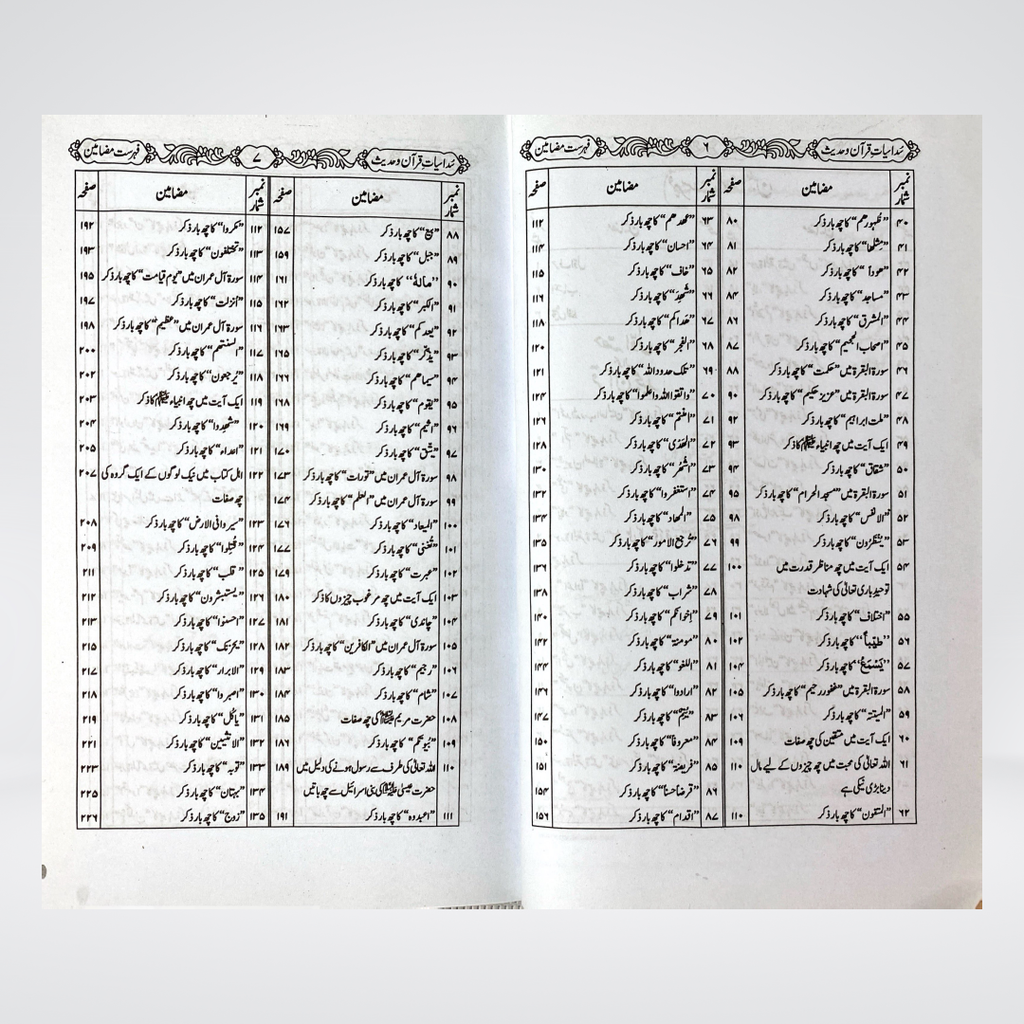 سُداسیاتِ قرآن و حدیث ۶ فہرست مضامین
نمبر شمار مضامین صفحہ
۴۰ ”ظہورھم“ کا چھ بار ذکر ۸۰
۴۱ ”مثلھا“ کا چھ بار ذکر ۸۱
۴۲ ”ھوداً“ کا چھ بار ذکر ۸۲
۴۳ ”مساجد“ کا چھ بار ذکر ۸۴
۴۴ ”المشرق“ کا چھ بار ذکر ۸۶
۴۵ ”اصحاب الجحیم“ کا چھ بار ذکر ۸۷
۴۶ سورۃ البقرۃ میں ”حکمت“ کا چھ بار ذکر ۸۸
۴۷ سورۃ البقرۃ میں ”عزیز حکیم“ کا چھ بار ذکر ۹۰
۴۸ ”ملت ابراہیم“ کا چھ بار ذکر ۹۲
۴۹ ایک آیت میں چھ انبیاء کا ذکر ۹۳
۵۰ ”شقاق“ کا چھ بار ذکر ۹۴
۵۱ سورۃ البقرۃ میں ”مسجد الحرام“ کا چھ بار ذکر ۹۵
۵۲ ”الانفس“ کا چھ بار ذکر ۹۸
۵۳ ”ینظرون“ کا چھ بار ذکر ۹۹
۵۴ ایک آیت میں چھ مناظر قدرت میں ۱۰۰
توحید باری تعالیٰ کی شہادت
۵۵ ”اختلاف“ کا چھ بار ذکر ۱۰۱
۵۶ ”طیباً“ کا چھ بار ذکر ۱۰۲
۵۷ ”یسمع“ کا چھ بار ذکر ۱۰۴
۵۸ سورۃ البقرۃ میں ”غفور رحیم“ کا چھ بار ذکر ۱۰۵
۵۹ ”المیتۃ“ کا چھ بار ذکر ۱۰۶
۶۰ ایک آیت میں متقین کی چھ صفات ۱۰۹
۶۱ اللہ تعالیٰ کی محبت میں چھ چیزوں کے لیے مال ۱۱۰
دینا بڑی نیکی ہے
۶۲ ”المتقون“ کا چھ بار ذکر ۱۱۰
نمبر شمار مضامین صفحہ
۶۳ ”عھدھم“ کا چھ بار ذکر ۱۱۲
۶۴ ”احسان“ کا چھ بار ذکر ۱۱۴
۶۵ ”خاف“ کا چھ بار ذکر ۱۱۵
۶۶ کا چھ بار ذکر ۱۱۶
۶۷ ”ھداکم“ کا چھ بار ذکر ۱۱۸
۶۸ ”الفجر“ کا چھ بار ذکر ۱۲۰
۶۹ ”تلک حدود اللہ“ کا چھ بار ذکر ۱۲۱
۷۰ ”واتقوا اللہ واعلموا“ کا چھ بار ذکر ۱۲۴
۷۱ کا چھ بار ذکر ۱۲۶
۷۲ ”الھدی“ کا چھ بار ذکر ۱۲۸
۷۳ ”اشھر“ کا چھ بار ذکر ۱۳۰
۷۴ ”استغفروا“ کا چھ بار ذکر ۱۳۲
۷۵ ”المھاد“ کا چھ بار ذکر ۱۳۴
۷۶ ”ترجع الامور“ کا چھ بار ذکر ۱۳۵
۷۷ ”تدخلوا“ کا چھ بار ذکر ۱۳۶
۷۸ ”شراب“ کا چھ بار ذکر ۱۳۸
۷۹ ”اخوانکم“ کا چھ بار ذکر ۱۴۰
۸۰ ”مومنۃ“ کا چھ بار ذکر ۱۴۲
۸۱ ”اللغو“ کا چھ بار ذکر ۱۴۴
۸۲ ”ارادوا“ کا چھ بار ذکر ۱۴۶
۸۳ ”یتم“ کا چھ بار ذکر ۱۴۷
۸۴ ”معروفاً“ کا چھ بار ذکر ۱۵۰
۸۵ ”فریضۃ“ کا چھ بار ذکر ۱۵۱
۸۶ ”قرضاً حسناً“ کا چھ بار ذکر ۱۵۴
۸۷ ”اقدام“ کا چھ بار ذکر ۱۵۶
سُداسیاتِ قرآن و حدیث ۷ فہرست مضامین
نمبر شمار مضامین صفحہ
۸۸ ”بیع“ کا چھ بار ذکر ۱۵۷
۸۹ ”جبل“ کا چھ بار ذکر ۱۵۹
۹۰ ”مالہٗ“ کا چھ بار ذکر ۱۶۱
۹۱ ”الکبر“ کا چھ بار ذکر ۱۶۲
۹۲ ”یعدکم“ کا چھ بار ذکر ۱۶۳
۹۳ ”یذکر“ کا چھ بار ذکر ۱۶۵
۹۴ ”سیماھم“ کا چھ بار ذکر ۱۶۶
۹۵ ”یقوم“ کا چھ بار ذکر ۱۶۸
۹۶ ”اثیم“ کا چھ بار ذکر ۱۶۹
۹۷ ”یتق“ کا چھ بار ذکر ۱۷۰
۹۸ سورۃ آل عمران میں ”تورات“ کا چھ بار ذکر ۱۷۳
۹۹ سورۃ آل عمران میں ”العلم“ کا چھ بار ذکر ۱۷۴
۱۰۰ ”المیعاد“ کا چھ بار ذکر ۱۷۶
۱۰۱ ”تغنی“ کا چھ بار ذکر ۱۷۷
۱۰۲ ”عبرت“ کا چھ بار ذکر ۱۷۹
۱۰۳ ایک آیت میں چھ مرغوب چیزوں کا ذکر ۱۸۰
۱۰۴ ”چاندی“ کا چھ بار ذکر ۱۸۱
۱۰۵ سورۃ آل عمران میں ”الکافرین“ کا چھ بار ذکر ۱۸۲
۱۰۶ ”رجیم“ کا چھ بار ذکر ۱۸۳
۱۰۷ ”شام“ کا چھ بار ذکر ۱۸۴
۱۰۸ حضرت مریم کی چھ صفات ۱۸۵
۱۰۹ ”بیوتکم“ کا چھ بار ذکر ۱۸۶
۱۱۰ اللہ تعالیٰ کی طرف سے رسول ہونے کی دلیل میں ۱۸۹
حضرت عیسیٰ کی بنی اسرائیل سے چھ باتیں
۱۱۱ ”اعبدوہ“ کا چھ بار ذکر ۱۹۱
نمبر شمار مضامین صفحہ
۱۱۲ ”مکروا“ کا چھ بار ذکر ۱۹۲
۱۱۳ ”تختلفون“ کا چھ بار ذکر ۱۹۳
۱۱۴ سورۃ آل عمران میں ”یوم قیامت“ کا چھ بار ذکر ۱۹۵
۱۱۵ ”انزلت“ کا چھ بار ذکر ۱۹۷
۱۱۶ سورۃ آل عمران میں ”عظیم“ کا چھ بار ذکر ۱۹۸
۱۱۷ ”السنتھم“ کا چھ بار ذکر ۲۰۰
۱۱۸ ”یرجعون“ کا چھ بار ذکر ۲۰۲
۱۱۹ ایک آیت میں چھ انبیاء کا ذکر ۲۰۳
۱۲۰ ”شھدوا“ کا چھ بار ذکر ۲۰۴
۱۲۱ ”اعداء“ کا چھ بار ذکر ۲۰۵
۱۲۲ اہل کتاب میں نیک لوگوں کے ایک گروہ کی ۲۰۷
چھ صفات
۱۲۳ ”سیروا فی الارض“ کا چھ بار ذکر ۲۰۸
۱۲۴ ”قتلوا“ کا چھ بار ذکر ۲۰۹
۱۲۵ ”قلب“ کا چھ بار ذکر ۲۱۱
۱۲۶ ”یستبشرون“ کا چھ بار ذکر ۲۱۲
۱۲۷ ”احسنوا“ کا چھ بار ذکر ۲۱۳
۱۲۸ ”یحزنک“ کا چھ بار ذکر ۲۱۵
۱۲۹ ”الابرار“ کا چھ بار ذکر ۲۱۷
۱۳۰ ”اصبروا“ کا چھ بار ذکر ۲۱۸
۱۳۱ ”یاکل“ کا چھ بار ذکر ۲۱۹
۱۳۲ ”الانثیین“ کا چھ بار ذکر ۲۲۱
۱۳۳ ”توبہ“ کا چھ بار ذکر ۲۲۳
۱۳۴ ”بہتان“ کا چھ بار ذکر ۲۲۵
۱۳۵ ”زوج“ کا چھ بار ذکر ۲۲۶